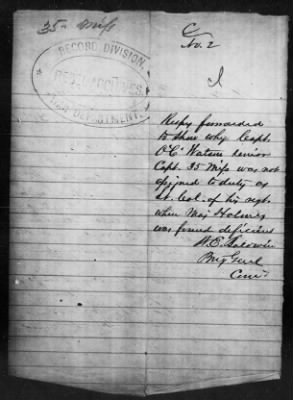 35" Miss
C
No. 2
I
RECORD DIVISION
REBEL ARCHIVES
WAR DEPARTMENT
Respy forwarded
to show why Capt.
O C Waters senior
Capt. 35 Miss was not
assigned to duty as
Lt. Col. of his regt.
when Maj Holmes
was found deficient
W. E. Baldwin
Brig Genl